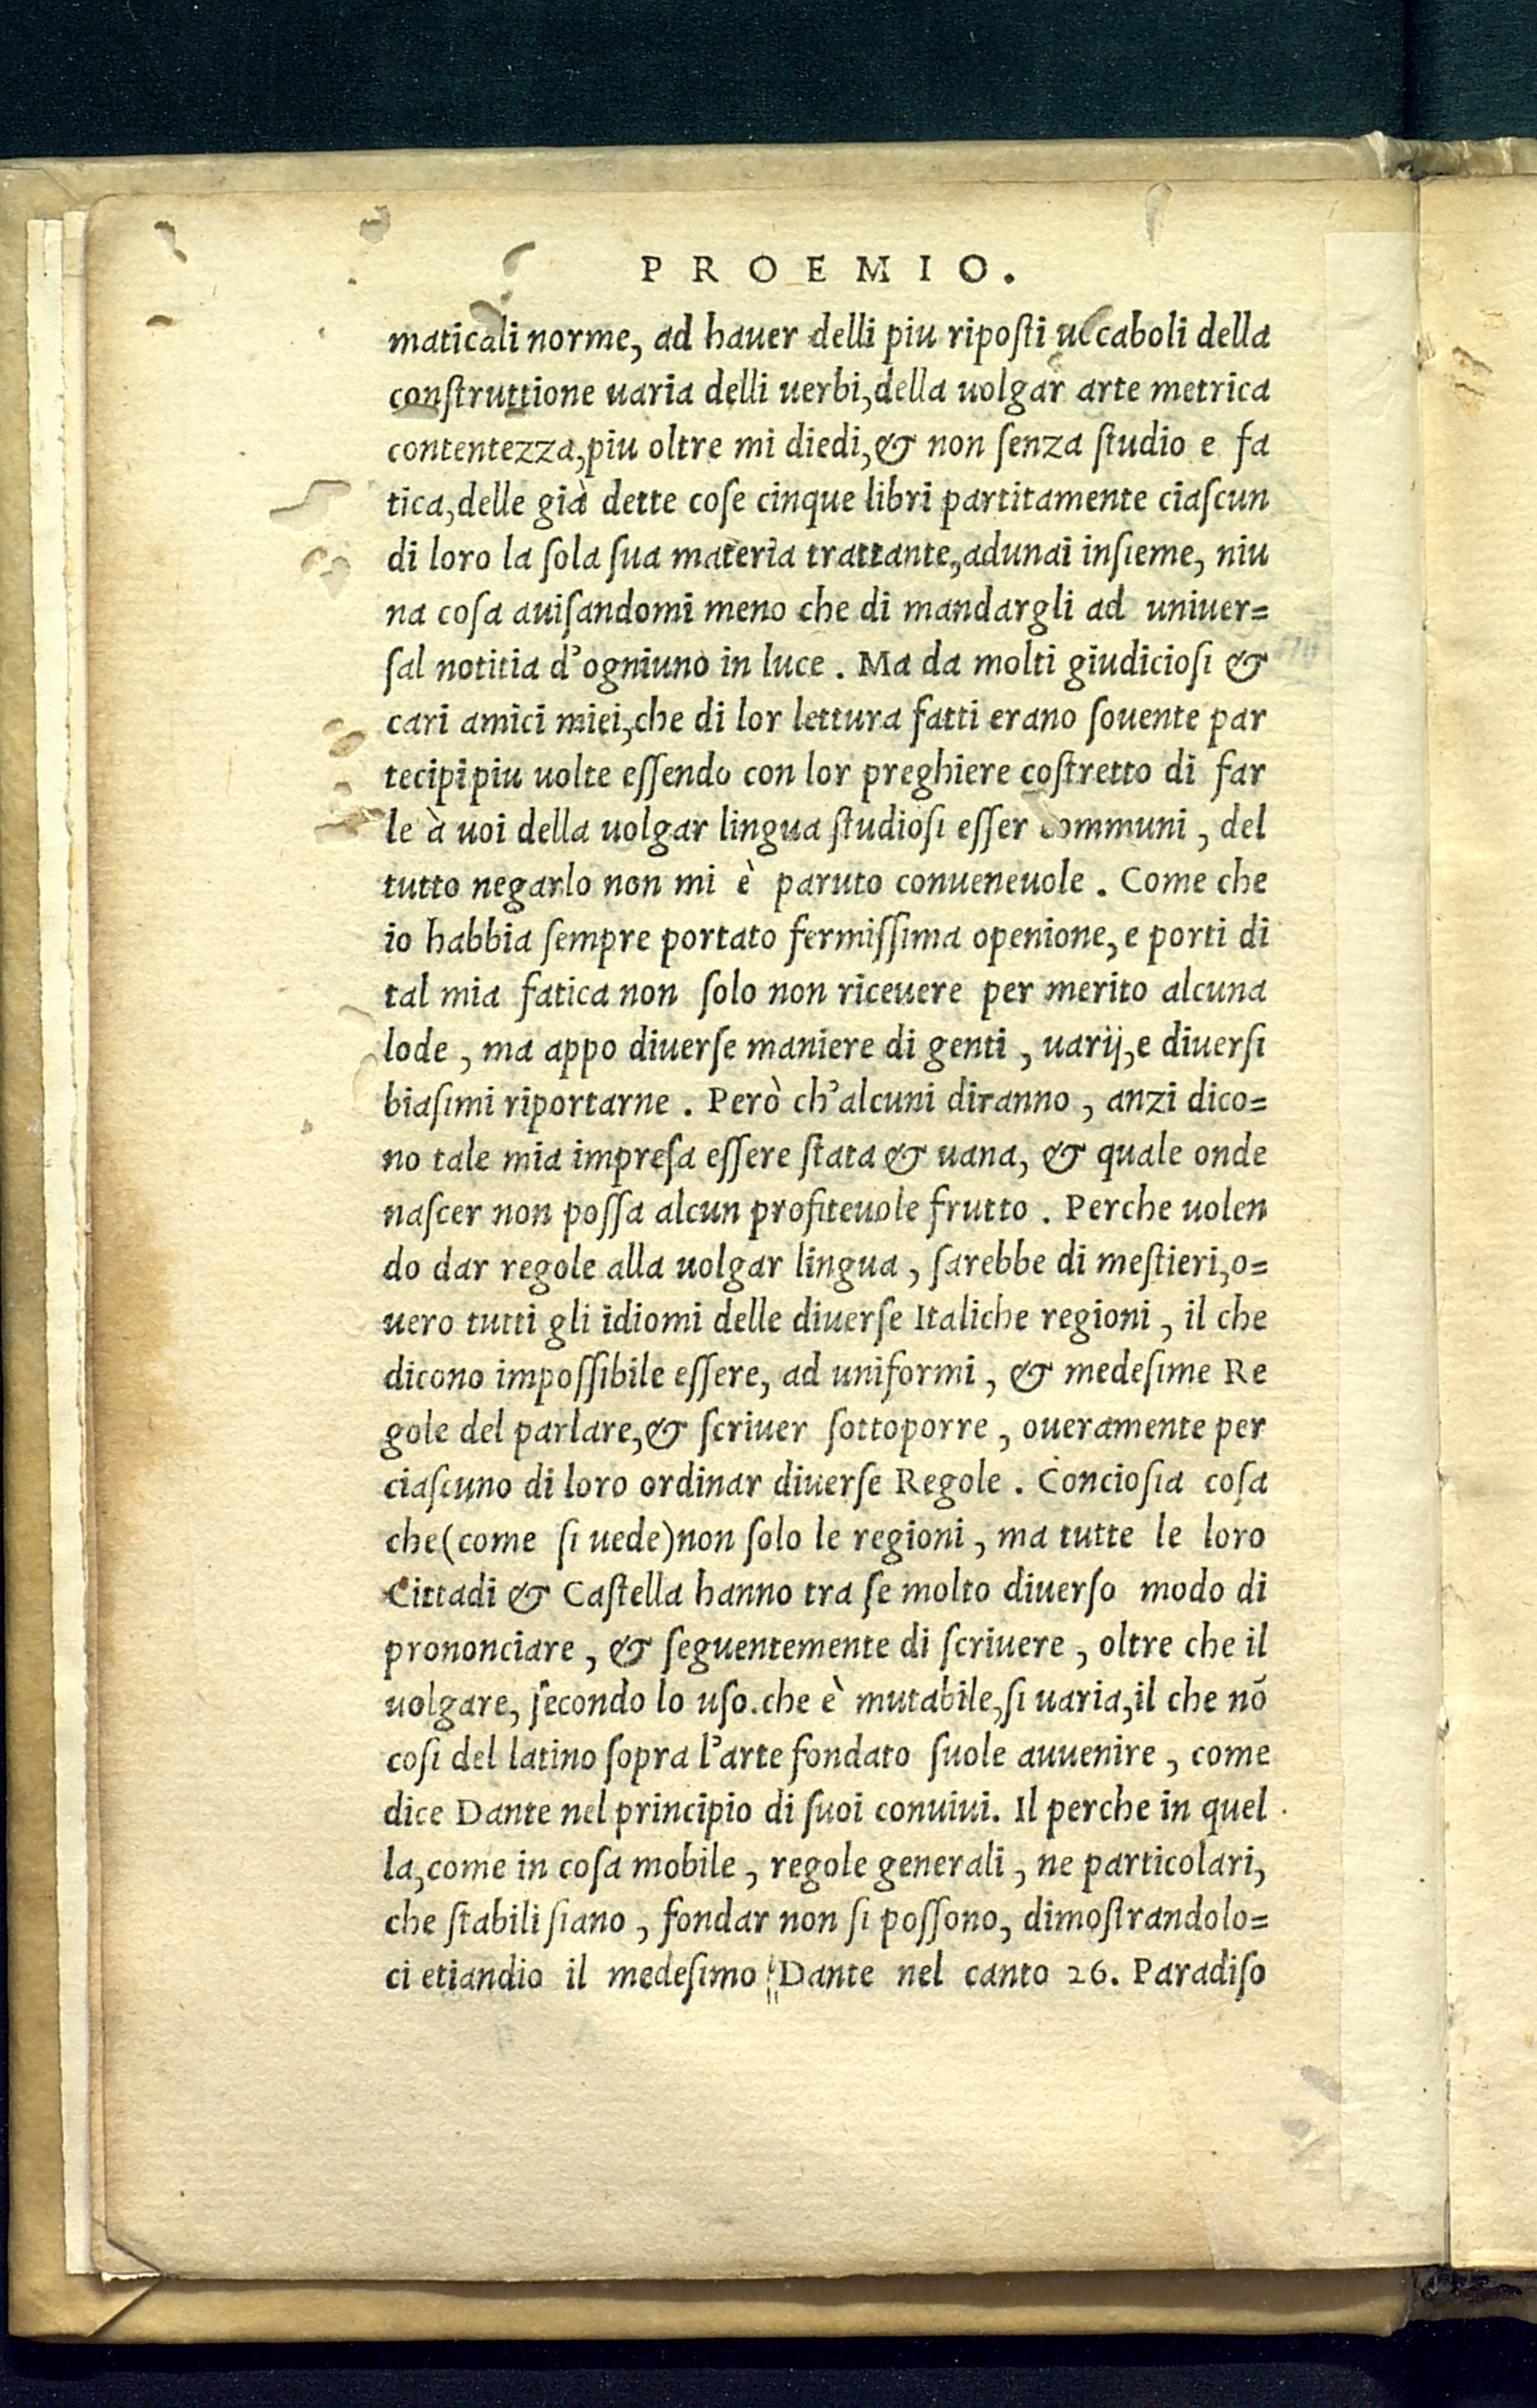 PROEMIO.
maticali norme, ad hauer delli piu ripoſti uocaboli della
conſtruttione uaria delli uerbi, della uolgar arte metrica
contentezza, piu oltre mi diedi, & non ſenza ſtudio e fa
tica, delle già dette coſe cinque libri partitamente ciaſcun
di loro la ſola ſua materia trattante, adunai inſieme, niu
na coſa auiſandomi meno che di mandargli ad uniuer=
ſal notitia d'ogniuno in luce. Ma da molti giudicioſi &
cari amici miei, che di lor lettura fatti erano ſouente par
tecipi piu uolte eſſendo con lor preghiere coſtretto di far
le à uoi della uolgar lingua ſtudioſi eſſer communi, del
tutto negarlo non mi è paruto conueneuole. Come che
io habbia ſempre portato fermiſſima openione, e porti di
tal mia fatica non ſolo non riceuere per merito alcuna
lode, ma appo diuerſe maniere di genti, uarij, e diuerſi
biaſimi riportarne. Però ch'alcuni diranno, anzi dico=
no tale mia impreſa eſſere ſtata & uana, & quale onde
naſcer non poſſa alcun profiteuole frutto. Perche uolen
do dar regole alla uolgar lingua, ſarebbe di meſtieri, o=
uero tutti gli idiomi delle diuerſe Italiche regioni, il che
dicono impoſſibile eſſere, ad uniformi, & medeſime Re
gole del parlare, & ſcriuer ſottoporre, oueramente per
ciaſcuno di loro ordinar diuerſe Regole. Concioſia coſa
che (come ſi uede) non ſolo le regioni, ma tutte le loro
Cittadi & Caſtella hanno tra ſe molto diuerſo modo di
prononciare, & ſeguentemente di ſcriuere, oltre che il
uolgare, ſecondo lo uſo. che è mutabile, ſi uaria, il che nō
coſi del latino ſopra l'arte fondato ſuole auuenire, come
dice Dante nel principio di ſuoi conuiui. Il perche in quel
la, come in coſa mobile, regole generali, ne particolari,
che ſtabili ſiano, fondar non ſi poſſono, dimoſtrandolo=
ci etiandio il medeſimo Dante nel canto 26. Paradiſo